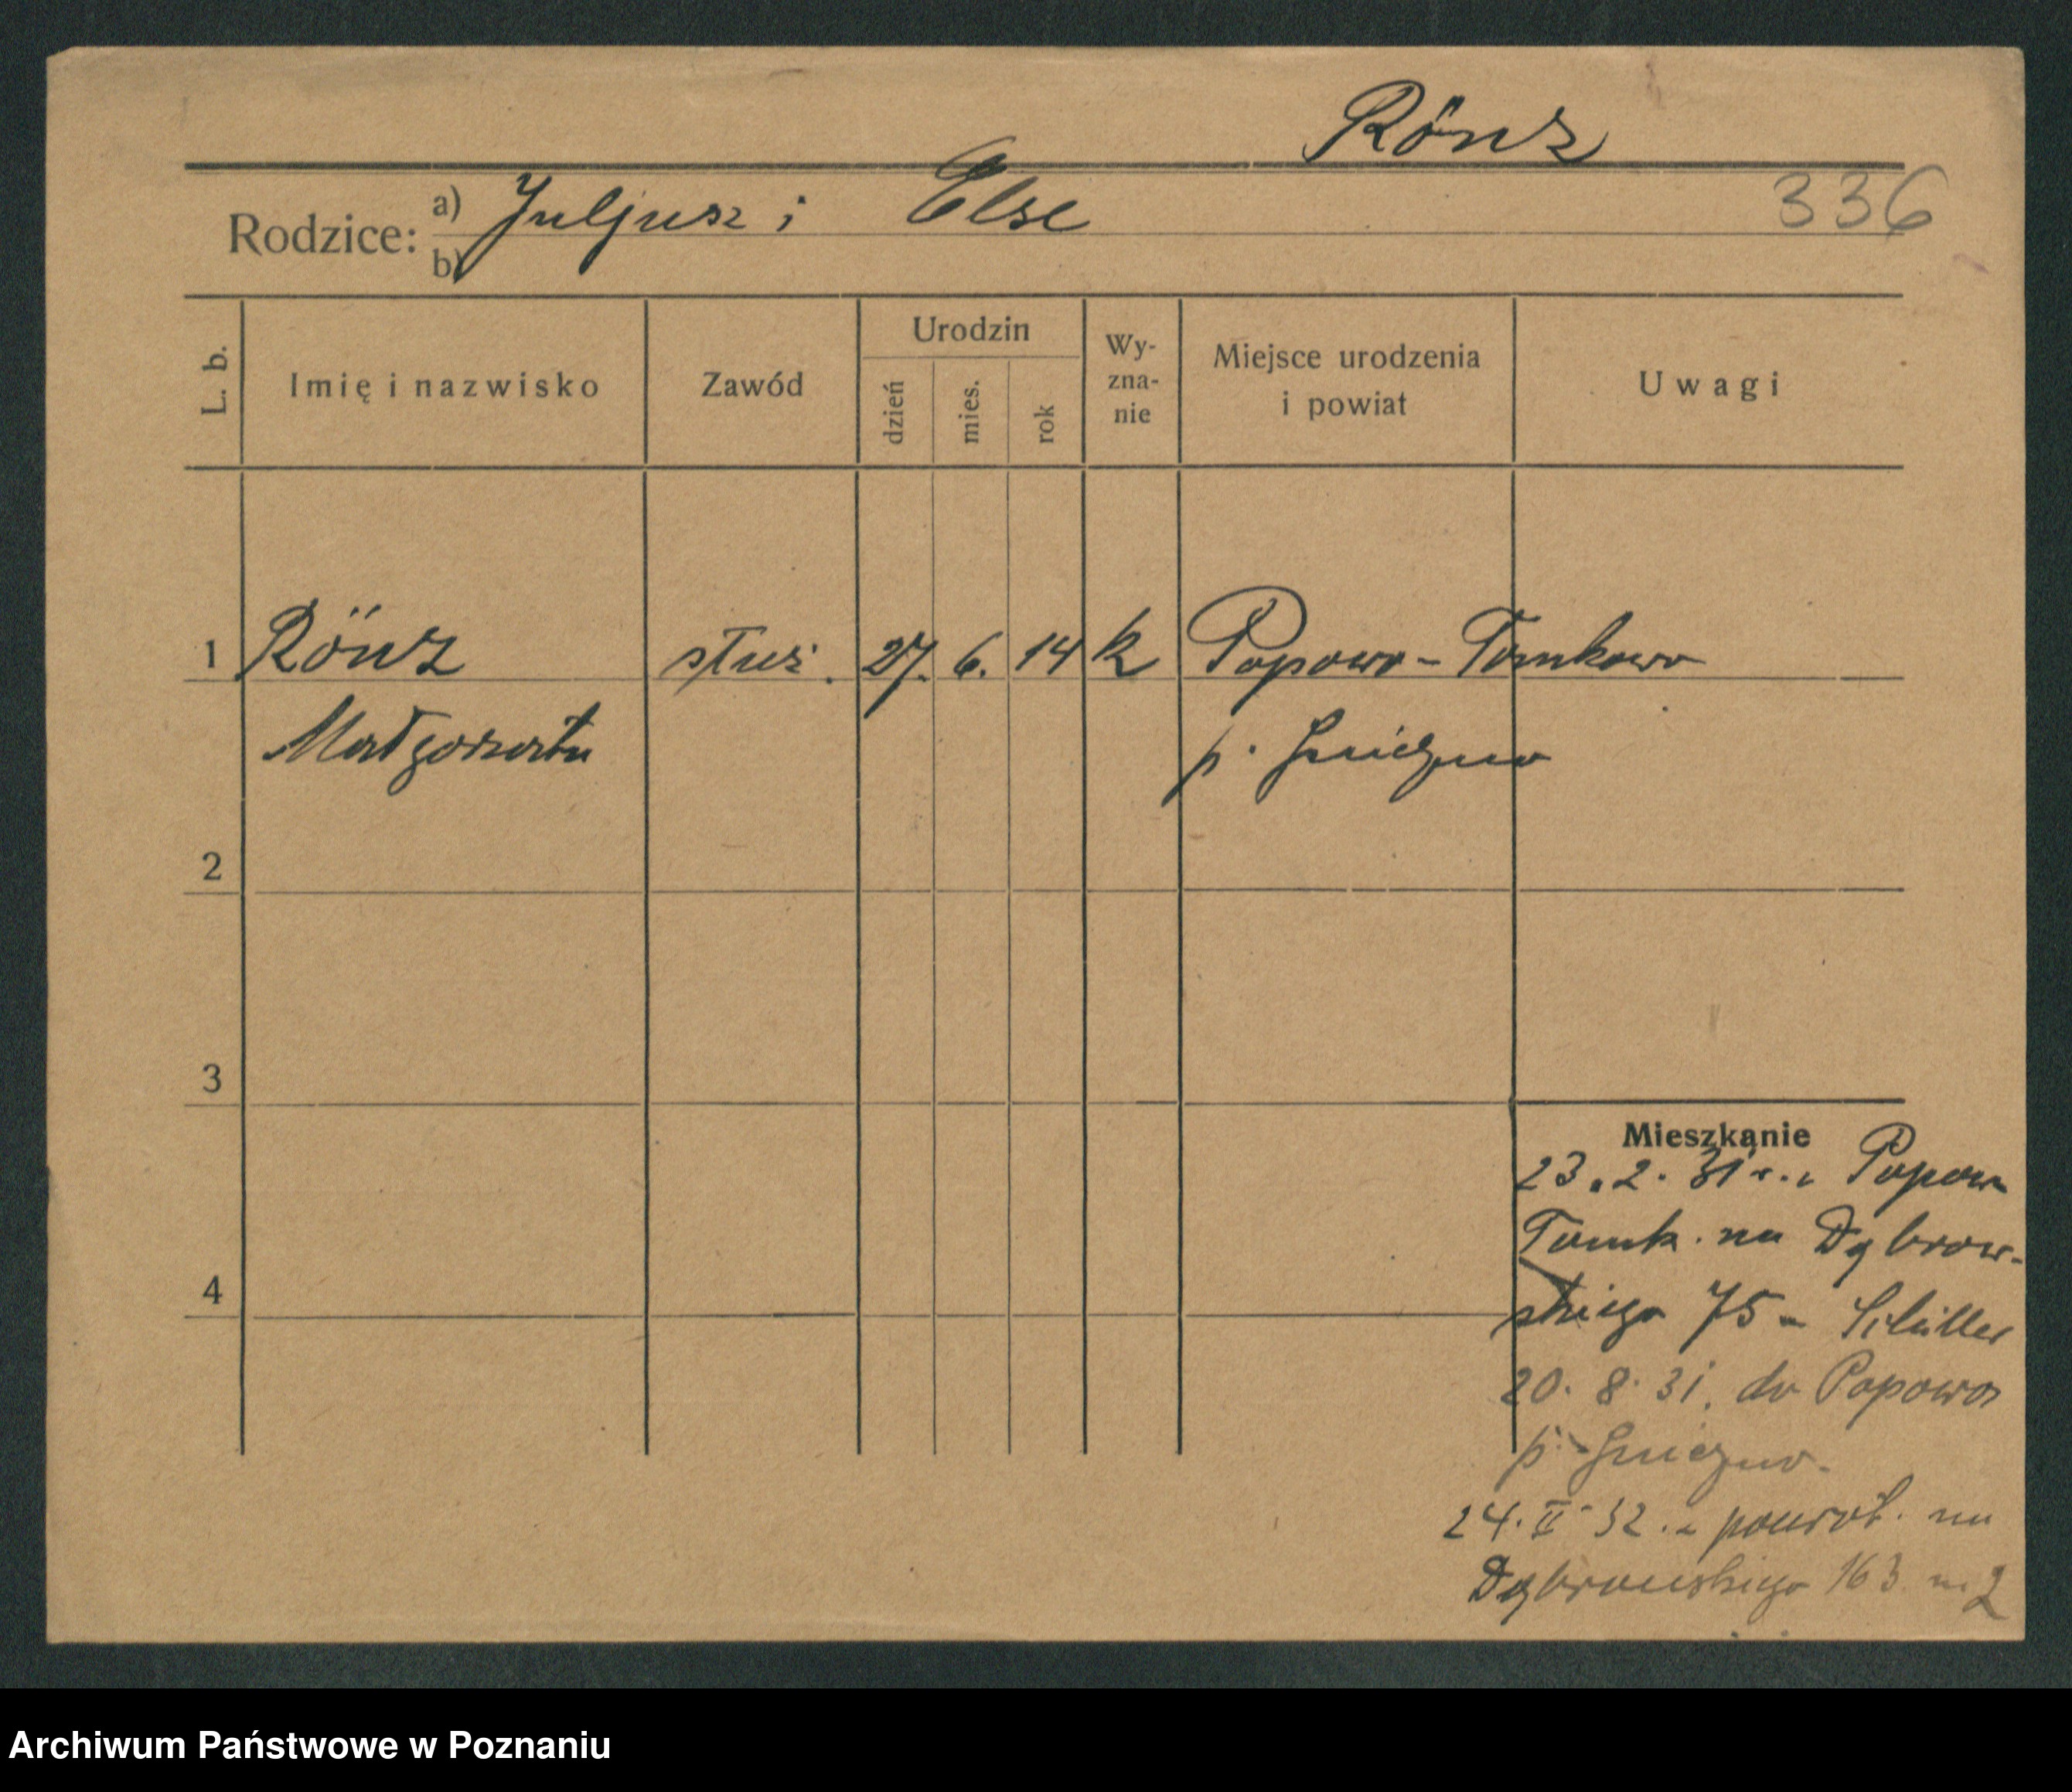 Rönz
336
Rodzice: a) Juljusz i Else
b)
L. b.
Imię i nazwisko
Zawód
Urodzin
dzień
mies.
rok
Wy-
zna-
nie
Miejsce urodzenia
i powiat
Uwagi
1 Rönz służ. 27. 6. 14 k Popowo-Tomkowo
Małgorzata p. Gniezno
2
3
4
Mieszkanie
23.2.31 r. z Popow
Tomk. na Dąbrow-
skiego 75 - Schiller
20. 8. 31. do Popowa
p. Gniezno.
24. II 32. z powrot. na
Dąbrowskiego 163 m 2
Archiwum Państwowe w Poznaniu